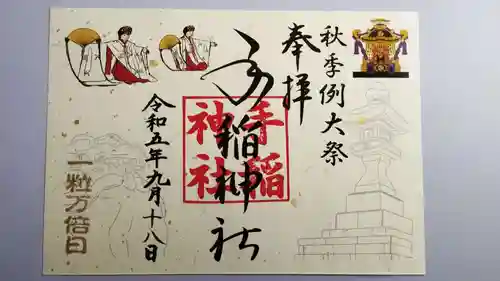 秋季例大祭
奉拝
手稲神社
手稲神社
令和五年九月十八日
一粒万倍日